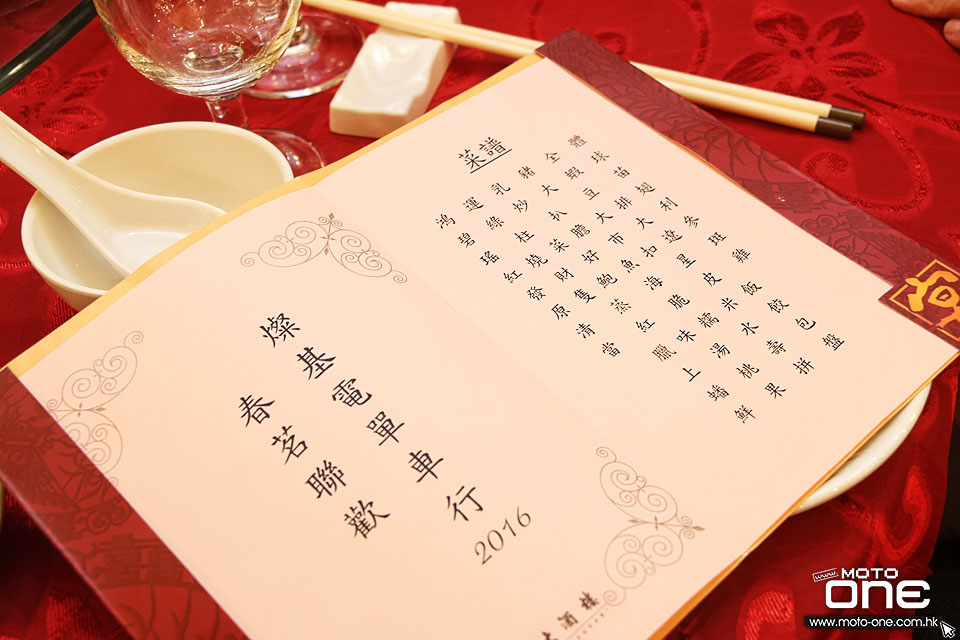 菜譜
鴻運乳豬全體
碧綠炒大蝦球
瑤柱扒豆苗
紅燒菜膽大排翅
發財好市大利
原隻鮑魚扣遼參
清蒸海星班
當紅脆皮雞
臘味糯米飯
上湯水餃
蟠桃壽包
鮮果拼盤
燦基電單車行 2016
春茗聯歡
酒樓
www
MOTO
ONE
www.moto-one.com.hk